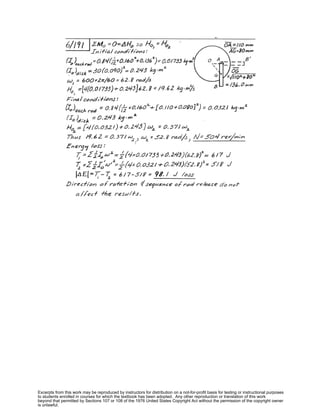 6/191 ΣM₀ = 0 = ΔH₀ so H₀₁ = H₀₂
Initial conditions:
(I₀)each rod = 0.84(1/12 0.160² + 0.136²) = 0.01735 kg·m²
(I₀)disk = 30(0.090)² = 0.243 kg·m²
ω₁ = 600×2π/60 = 62.8 rad/s
H₀₁ = [4(0.01735) + 0.243]62.8 = 19.62 kg·m²/s
Final conditions:
(I₀)each rod = 0.84(1/12 ×0.160² + [0.110+0.080]²) = 0.0321 kg·m²
(I₀)disk = 0.243 kg·m²
H₀₂ = [4(0.0321) + 0.243]ω₂ = 0.371ω₂
Thus 19.62 = 0.371ω₂, ω₂ = 52.8 rad/s, N = 504 rev/min
Energy loss:
T₁ = Σ½I₀ω² = ½(4×0.01735+0.243)(62.8)² = 617 J
T₂ = Σ½I₀ω² = ½(4×0.0321+0.243)(52.8)² = 518 J
|ΔE| = T₁-T₂ = 617-518 = 98.1 J loss
Direction of rotation & sequence of rod release do not
affect the results.
OA = 110 mm
AG = 80 mm
OG =
= 136.0 mm
O A B' B
Excerpts from this work may be reproduced by instructors for distribution on a not-for-profit basis for testing or instructional purposes
to students enrolled in courses for which the textbook has been adopted. Any other reproduction or translation of this work
beyond that permitted by Sections 107 or 108 of the 1976 United States Copyright Act without the permission of the copyright owner
is unlawful.